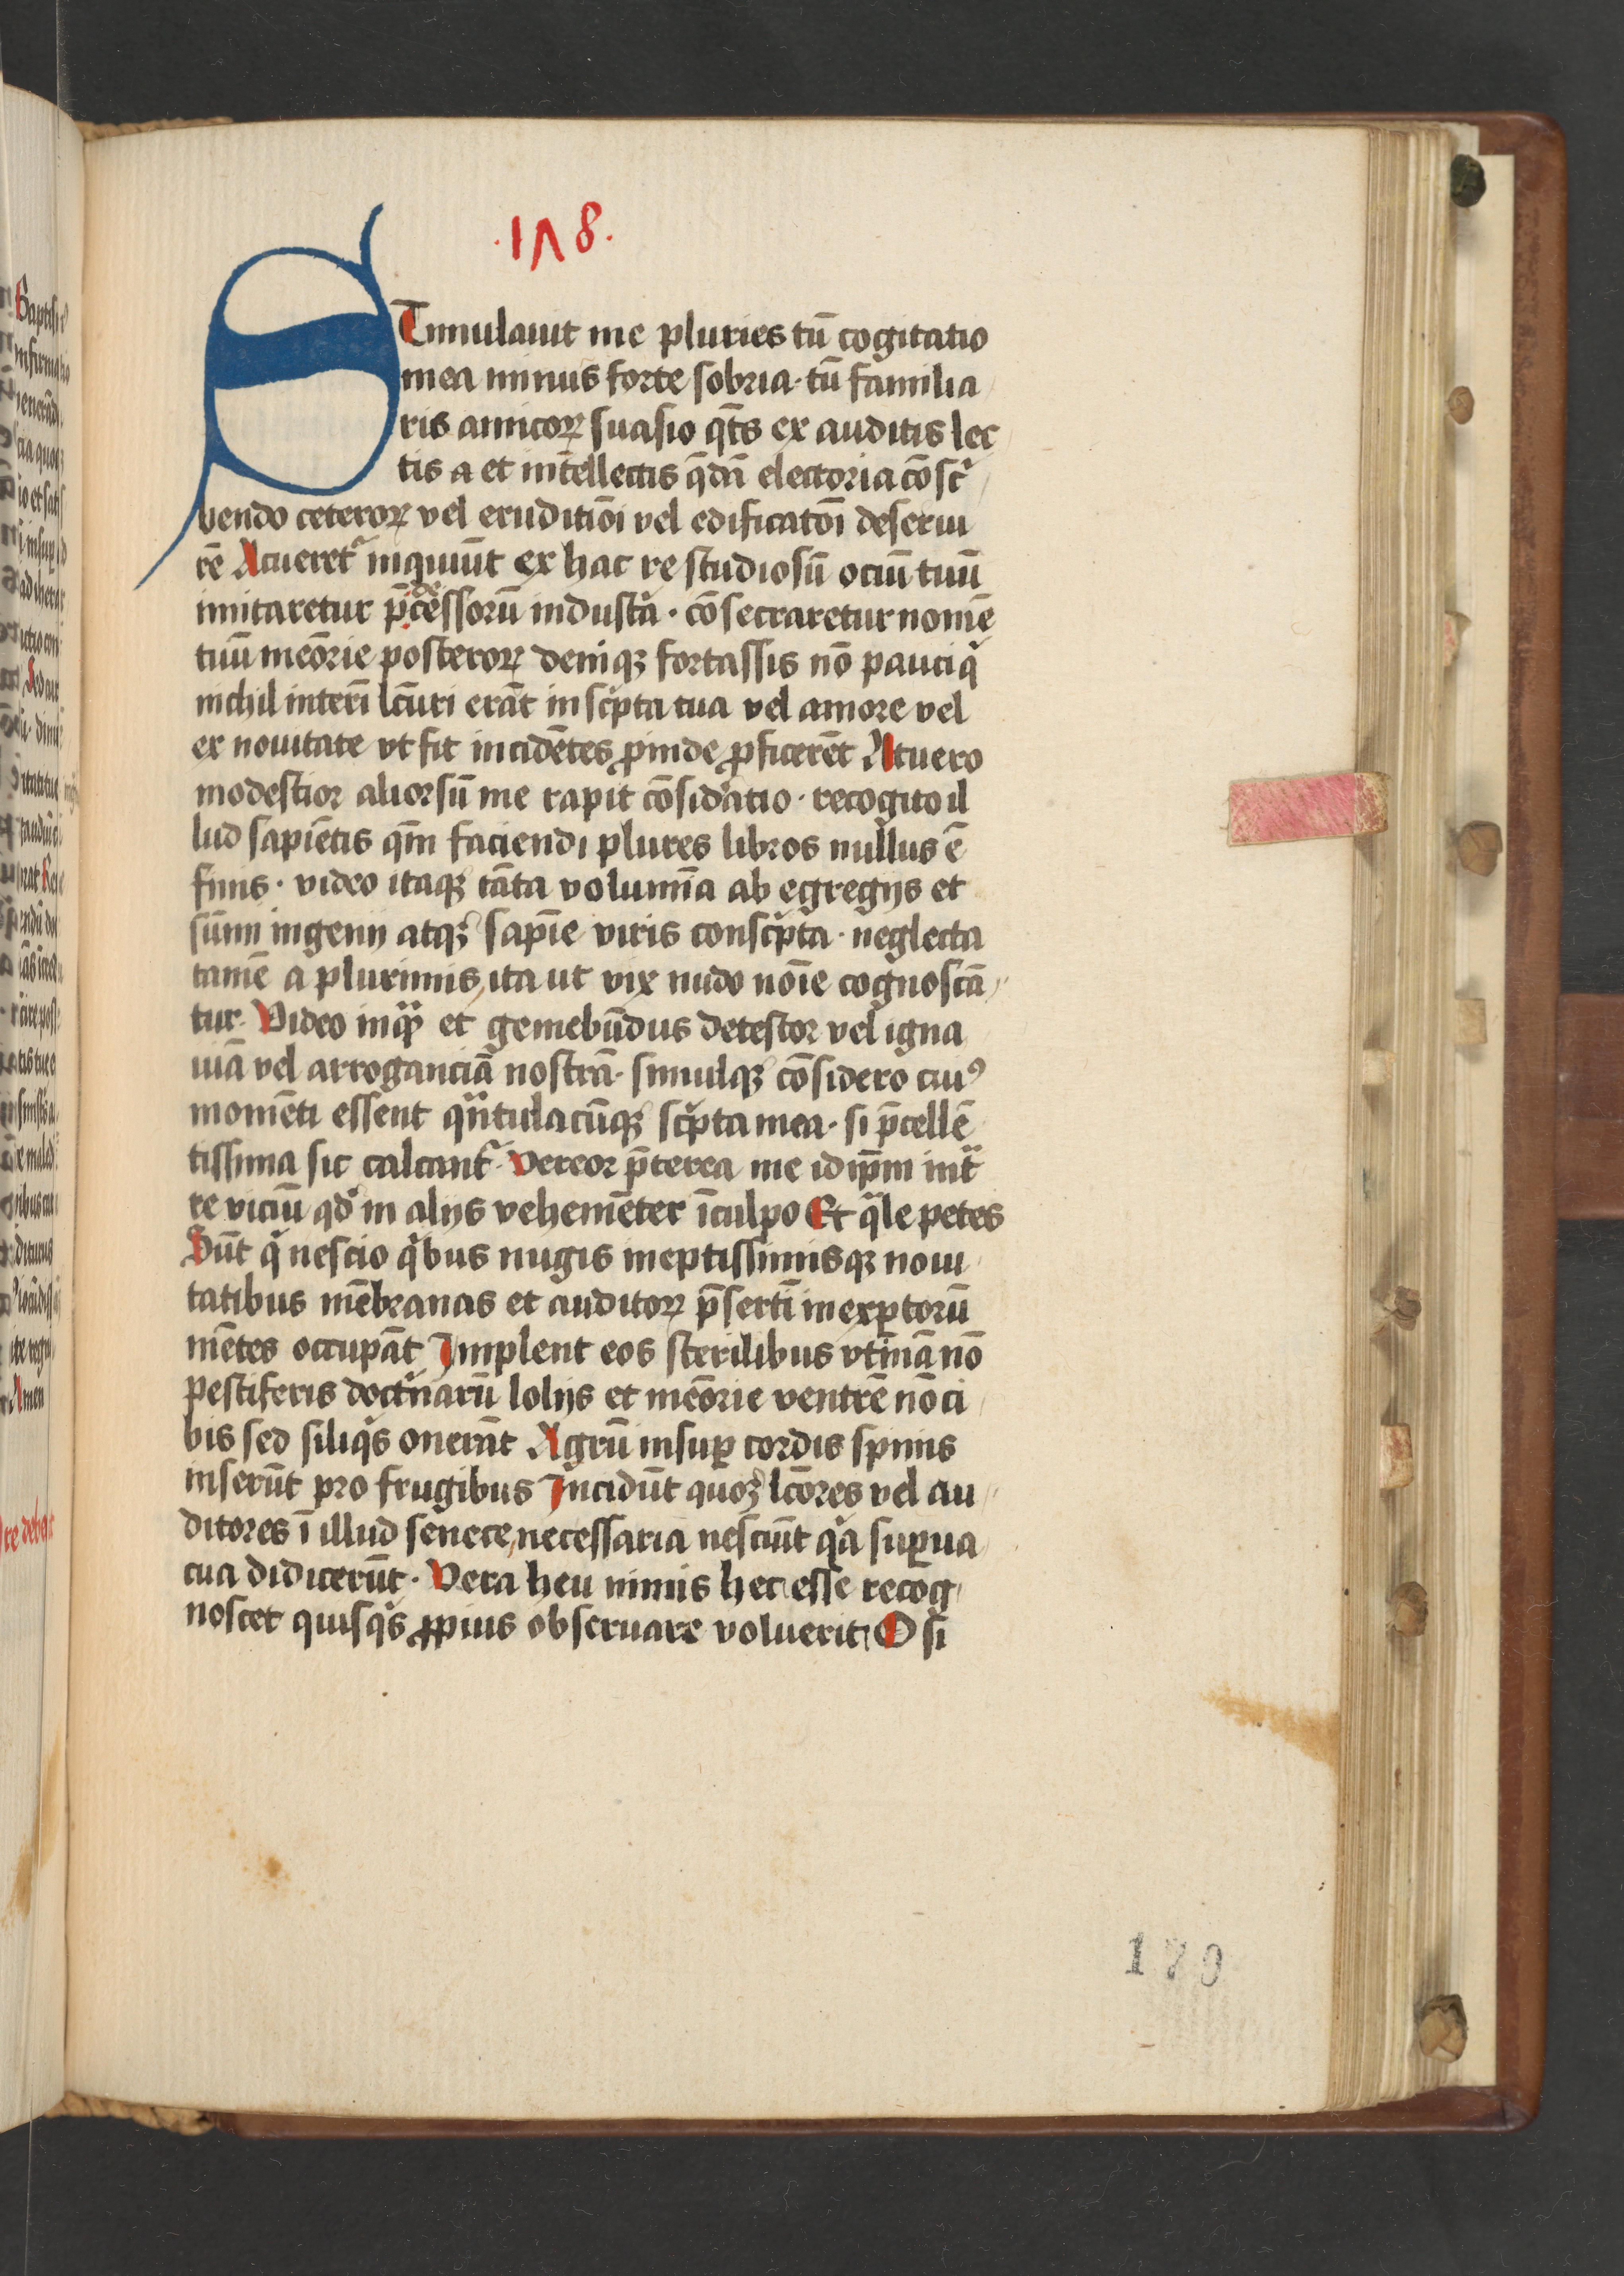 .1Λ8.
STimulauit me pluries tū cogitatio
mea minus forte sobria · tū familia
ris amicoꝝ suasio qt̄s ex auditis lec
tis a et intēllectis q̄dā electoria cōsc̛
bendo ceteroꝝ vel eruditiōi vel edificatōi deserui
rē Acueret᷑ inquiūt ex hac re studiosū ociū tuū
imitaretur p̄decessorū industͥa · cōsecraretur nomē
tuū meōrie posteroꝝ deniqꝫ fortassis nō pauci qͥ
nichil interī lc̄uri erāt in scͥpta tua vel amore vel
ex nouitate vt fit incidētes ꝓinde ꝓficerēt At uero
modestior aliorsū me rapit cōsid̓atio · recogito il
lud sapiētis qm̄ faciendi plures libros nullus ē
finis · video itaqꝫ tāta volumīa ab egregijs et
sūmi ingenij atqꝫ sapīe viris conscͥpta · neglecta
tamē a plurimis, ita ut vix nudo noīe cognoscā
tur · Video inqͣꝫ et gemebūdus detestor vel igna
uiā vel arroganciā nostrā · simulqꝫ cōsidero cuiꝰ
momēti essent qͣntulacūqꝫ scͥpta mea · si p̄cellē
tissima sic calcant᷑ · Vereor p̄terea me idip̄m intͣ
re viciū qd̓ in alijs vehemēter īculpo Et qͣle petes
Sūt qͥ nescio qͥbus nugis ineptissimisqꝫ noui
tatibus mēbranas et auditoꝝ p̄sertī inexꝑtorū
mētes occupāt Implent eos sterilibus vtinā nō
pestiferis doctͥnarū lolijs et meōrie ventrē nō ci
bis sed siliqͥs onerāt Agrū insuꝑ cordis spinis
inserūt pro frugibus Incidūt quoqꝫ lc̄ores vel au
ditores ī illud senece, necessaria nesciūt qͥa suꝑua
cua didicerūt · Vera heu nimis hec esse recog
noscet quisqͥs ꝓpius obseruare voluerit O si
179